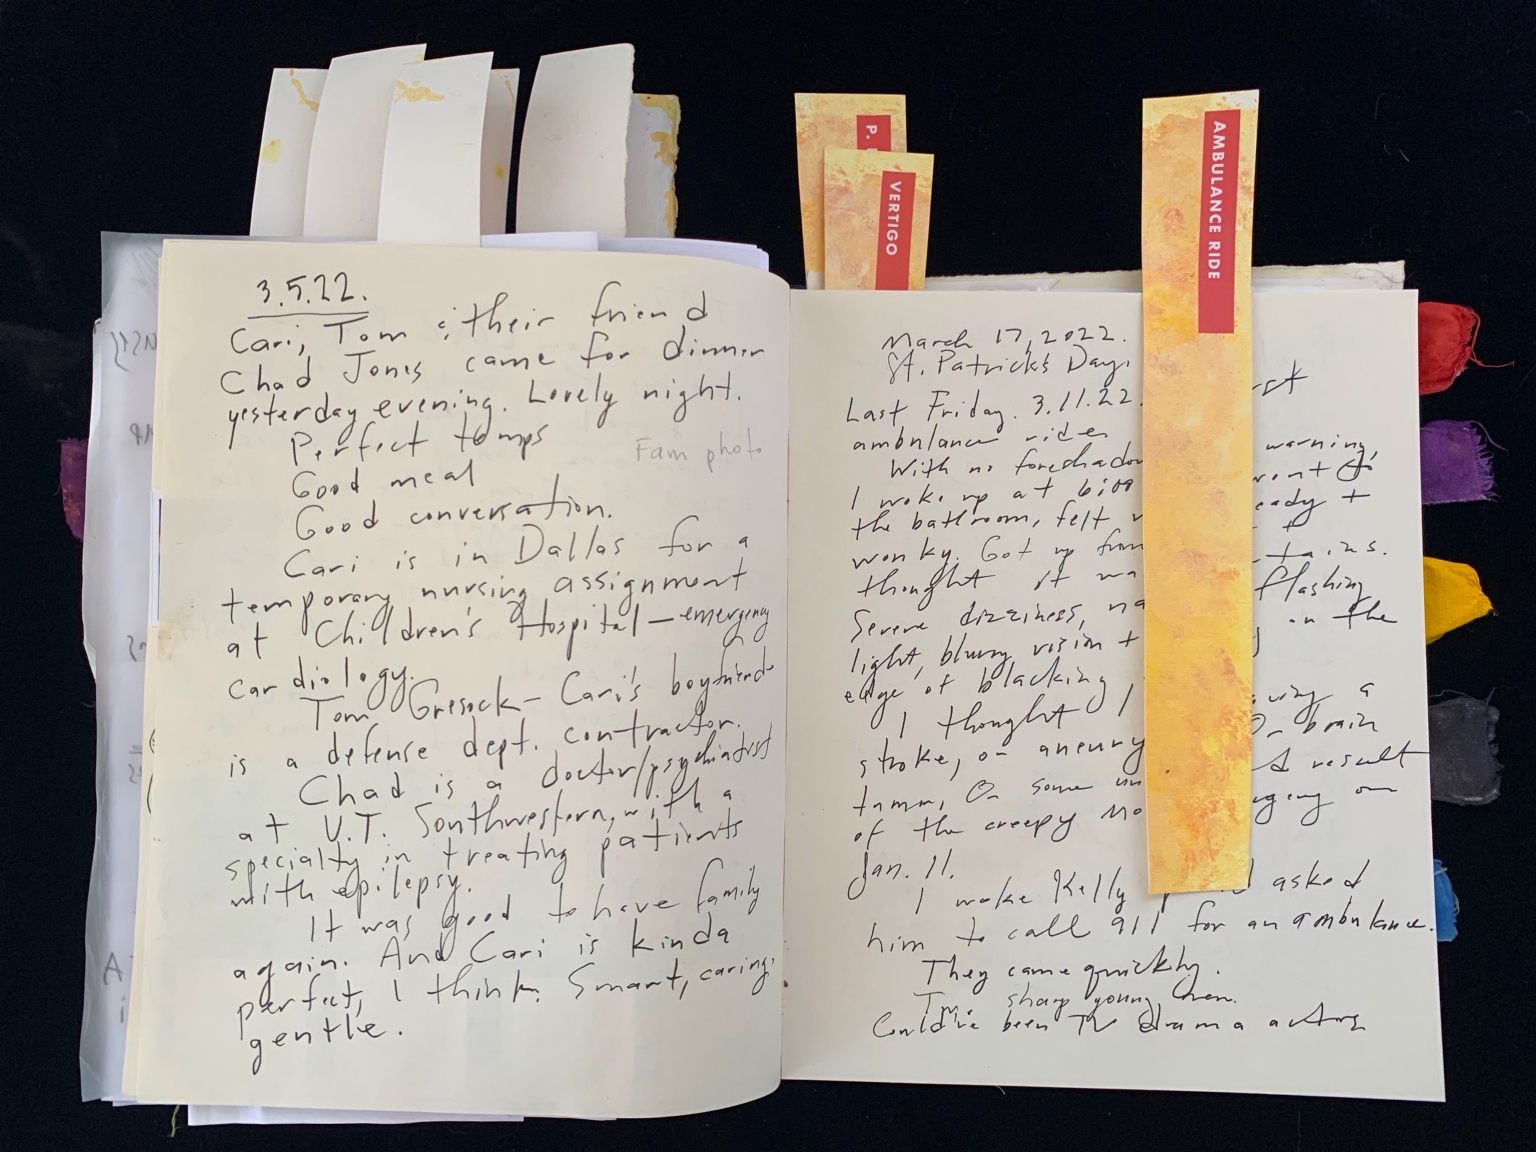 3.5.22.
Cari, Tom & their friend
Chad Jones came for dinner
yesterday evening. Lovely night.
Perfect temps
Fam photo
Good meal
Good conversation.
Cari is in Dallas for a
temporary nursing assignment
at Children's Hospital — emergency
cardiology.
Tom Gresock — Cari's boyfriend
is a defense dept. contractor.
Chad is a doctor/psychiatrist
at U.T. Southwestern, with a
specialty in treating patients
with epilepsy.
It was good to have family
again. And Cari is kinda
perfect, I think. Smart, caring,
gentle.
P.
VERTIGO
AMBULANCE RIDE
March 17, 2022.
St. Patrick's Day.
Last Friday. 3.11.22.
ambulance ride
With no foreshadow warning,
I woke up at went to
the bathroom, felt
wonky. Got up from
thought it
Severe dizziness, flashing
light, blurry vision + on the
edge of blacking
I thought I a
stroke, or aneury Or brain
tumor, Or some A result
of the creepy on
Jan. 11.
I woke Kelly asked
him to call 911 for an ambulance.
They came quickly.
Two sharp young men.
Could've been TV drama actors